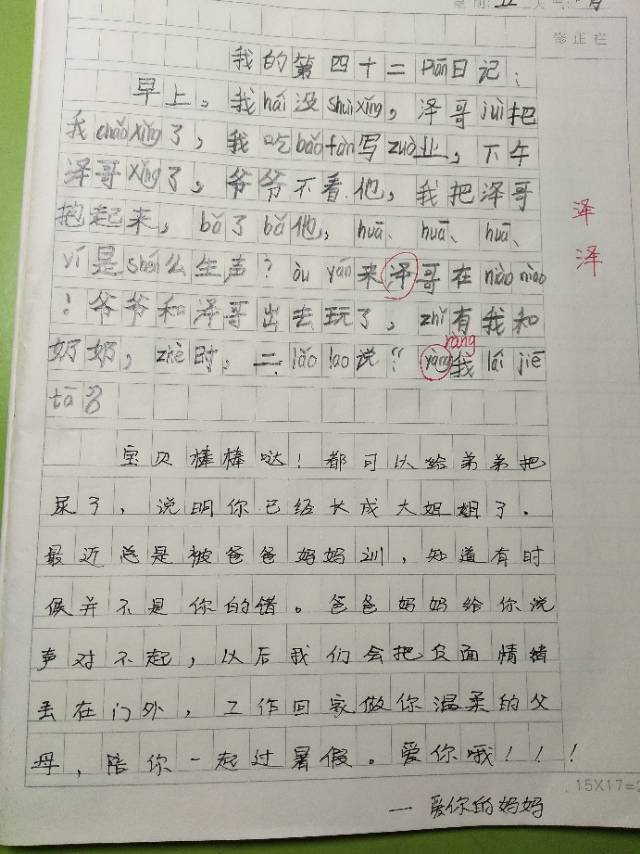 星期:五 天气:
修正栏
我的第四十二piān日记:
早上,我hái没shuìxǐng,泽哥jiù把
我chǎoxǐng了,我吃bǎofàn写zuò业,下午
泽哥xǐng了,爷爷不看他,我把泽哥
抱起来,bǎ了bǎ他,huā、huā、huā、
yí是shén么生声?òu yán来泽哥在niào niào
!爷爷和泽哥出去玩了,zhǐ有我和
奶奶,zhè时,二lǎo lao说:“yàng我lái jiē
tā”
ràng
泽
泽
宝贝棒棒哒!都可以给弟弟把
尿了,说明你已经长成大姐姐了。
最近总是被爸爸妈妈训,知道有时
候并不是你的错。爸爸妈妈给你说
声对不起,以后我们会把负面情绪
丢在门外,工作回家做你温柔的父
母,陪你一起过暑假。爱你哦!!!
15X17=2
—爱你的妈妈